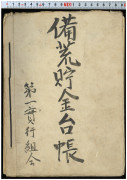 備荒貯金台帳
第一実行組会